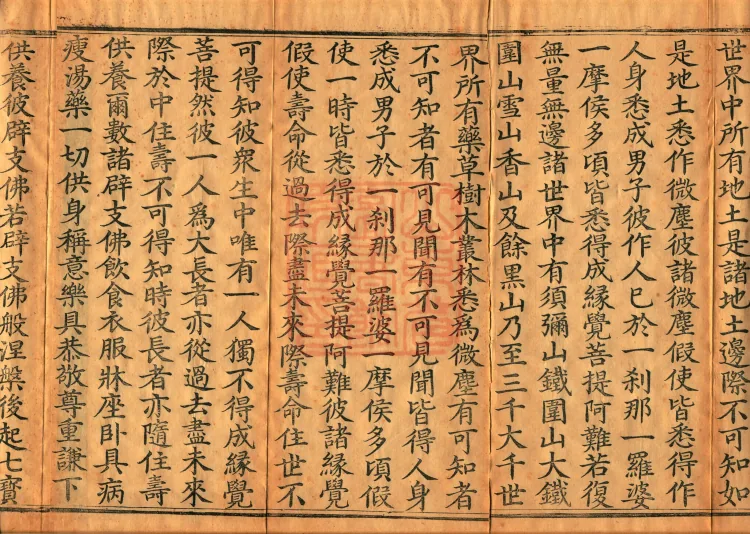 世界中所有地土是諸地土邊際不可知如
是地土悉作微塵彼諸微塵假使皆悉得作
人身悉成男子彼作人已於一剎那一羅婆
一摩侯多頃皆悉得成緣覺菩提阿難若復
無量無邊諸世界中有須彌山鐵圍山大鐵
圍山雪山香山及餘黑山乃至三千大千世
界所有藥草樹木叢林悉為微塵有可知者
不可知者有可見聞有不可見聞皆得人身
悉成男子於一剎那一羅婆一摩侯多頃假
使一時皆悉得成緣覺菩提阿難彼諸緣覺
假使壽命從過去際盡未來際壽命住世不
可得知彼眾生中唯有一人獨不得成緣覺
菩提然彼一人為大長者亦從過去盡未來
際於中住壽不可得知時彼長者亦隨住壽
供養爾數諸辟支佛飲食衣服牀座臥具病
瘦湯藥一切供身稱意樂具恭敬尊重謙下
供養彼辟支佛若辟支佛般涅槃後起七寶